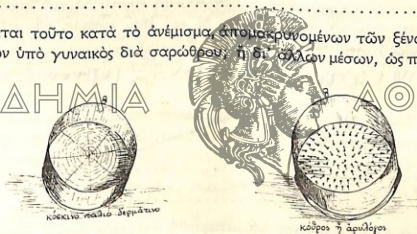 ται τοῦτο κατὰ τὸ ἀνέμισμα, ἀπομακρυνομένων τῶν ξέν
ν ὑπὸ γυναικὸς διὰ σαρώθρου, ἢ δι' ἄλλων μέσων, ὡς π
ΔΗΜΙΑ ΑΘ
κόσκινο παλιὸ δερμάτινο
κοῦρος ἢ ἀρυλόγος